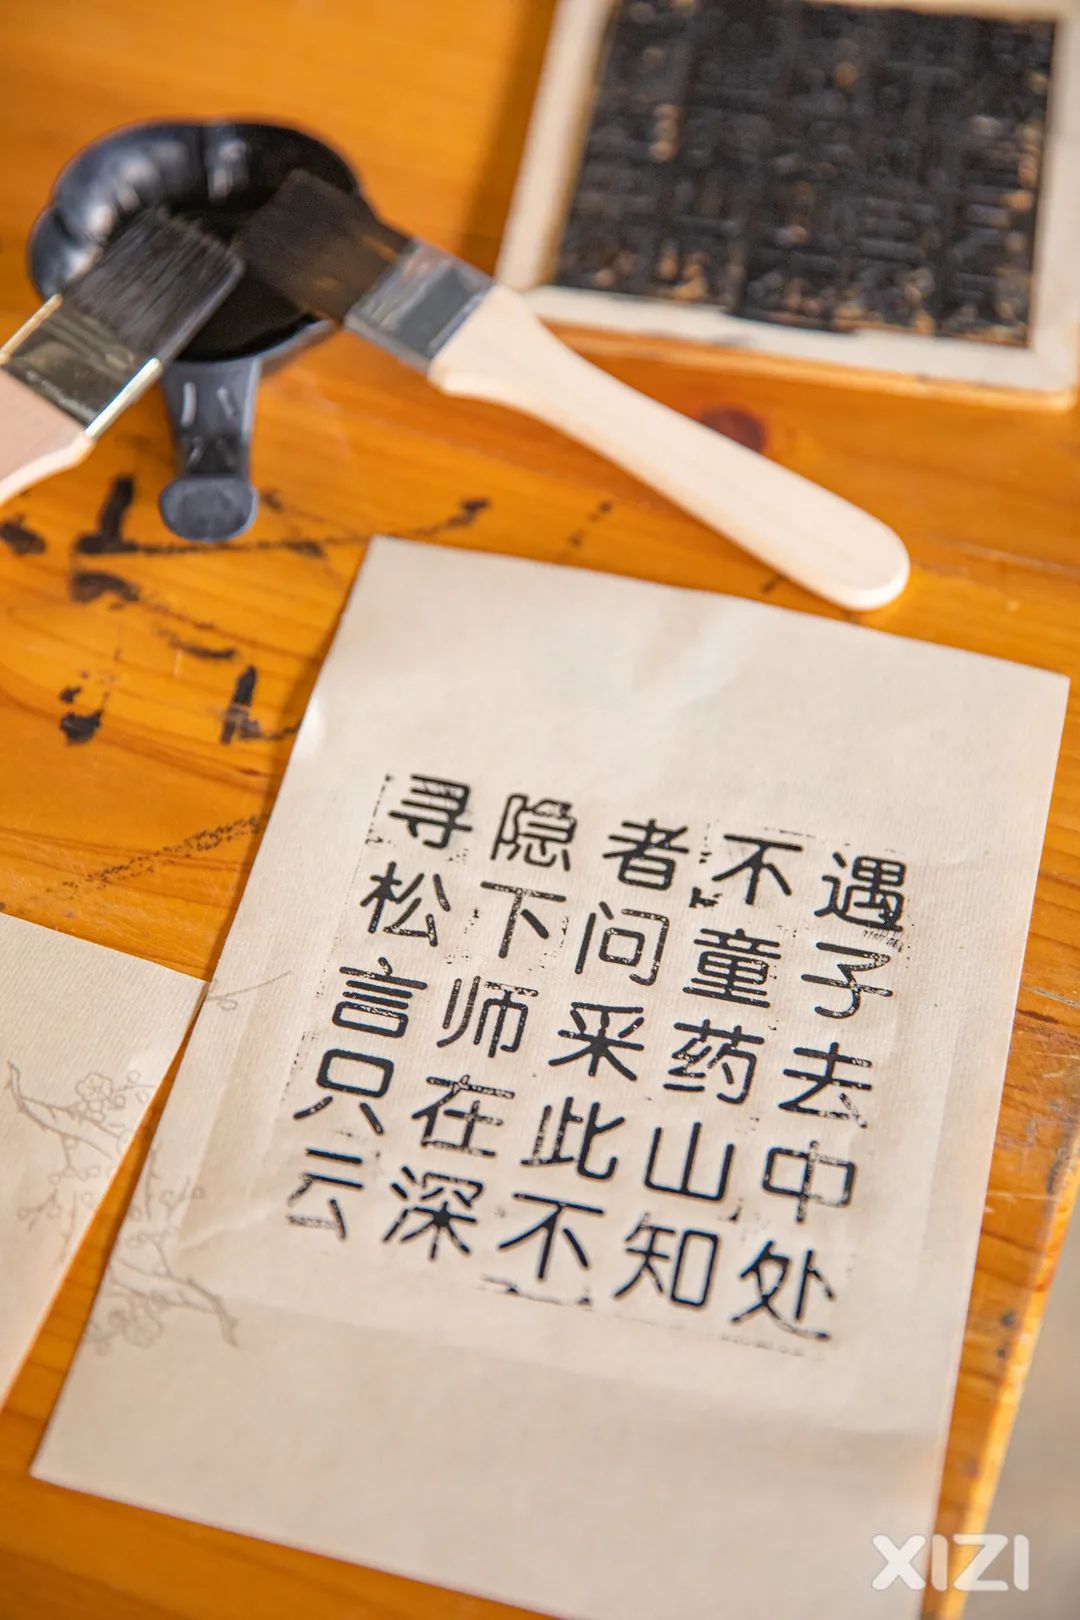 寻隐者不遇
松下问童子
言师采药去
只在此山中
云深不知处
XIZI